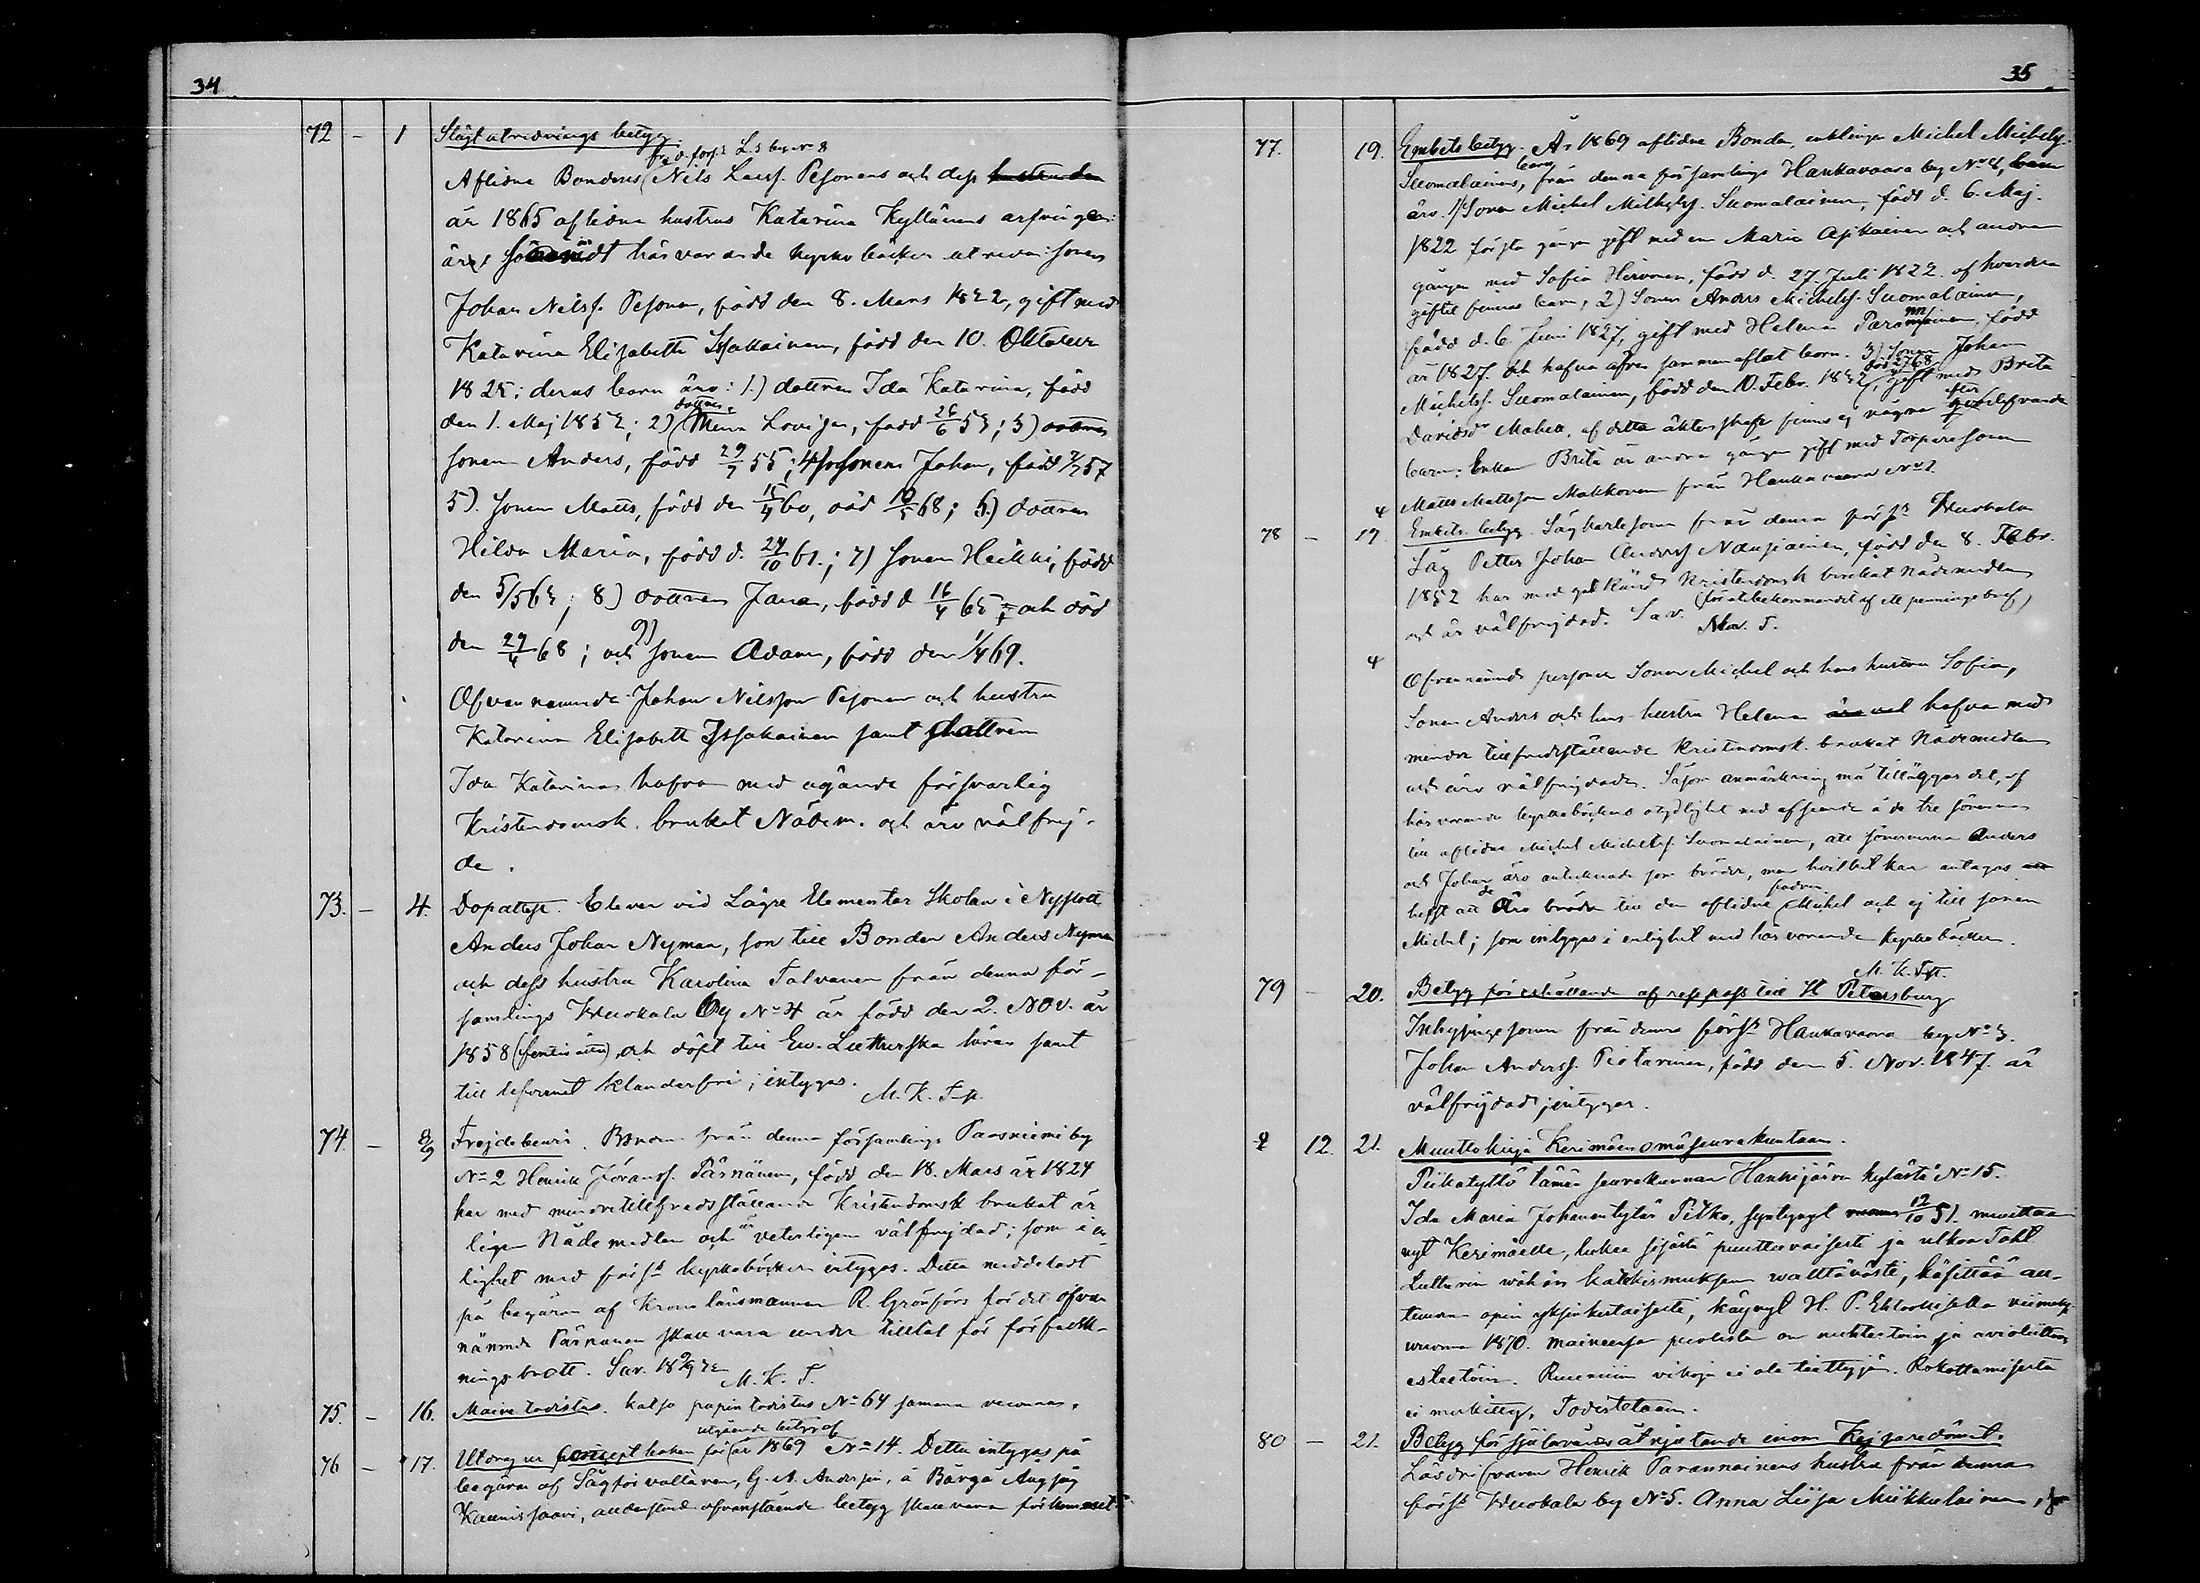 34
72 – 1 Slägtutrednings betyg
fr. d. förs. L:s by No 8
Aflidne Bondens Nils Larss. Pesonens och dess hustru den
år 1865 aflidna hustrus Katarina Kyllönens arfvingar
äro häsvarande kyrkoböcker utreda: sonen
Johan Nilss. Pesonen, född den 8. Mars 1822, gift med
Katarina Elisabeth Issakainen, född den 10. Oktober
1825; deras barn äro: 1.) dottren Ida Katarina, född
dottren
den 1. Maj 1852; 2) Minna Lovisa, född 26/6 53; 3)
sonen Anders, född 29/7 55; 4) sonen Johan, född 7/7 57
5). sonen Matts, född den 15/4 60, död 10/5 68; 6.) dottren
Hilda Maria, född d. 24/10 61.; 7) sonen Heikki, född
den 5/5 63; 8) dottren Jana, född d 16/4 65 och död
den 29/4 68; och 9) sonen Adam, född den 1/4 69.
Ofvannämnde Johan Nilsson Pesonen och hustru
Katarina Elisabeth Issakainen samt dottren
Ida Katarina hafva med egande försvarlig
Kristendomsk. brukat Nådem. och äro välfrej-
de.
73. – 4. Dopattest. Eleven vid Lägre Elementar Skolan i Nyslott
Anders Johan Nyman, son till Bonden Anders Nyman
och dess hustru Karolina Talvanen från denna för-
samlings Wuokala By No 4 är född den 2. Nov. år
1858 (femtio åtta), och döpt till Ew. Lutherska läran samt
till lefvernet klanderfri; intygas. M. K. T-p.
74. – 8/9 Frejdebevis. Bonden från denna församlings Paasniemi by
No 2 Henrik Göranss. Pärnänen, född den 18. Mars år 1824
har med mindre tillfredsställande Kristendomsk brukat är
ligen Nådemedlen och är veterligen välfrejdad; som i en
lighet med förs:s kyrkoböcker intygas. Detta meddeladt
på begäran af Krono länsmannen R. Grönfors för det ofvan
nämnde Pärnänen skall vara under tilltal för förfalsk-
nings brott. Sav. M. K. T.
75. – 16. Maine todistus. katso papin todistus No 64 samana vuonna.
utgående betyg af
76 – 17. Utdrag ur koncept boken för år 1869 No 14. Detta intygas på
begäran af Sågförvaltaren, G. A. Andersin, å Borgå Ångsåg
Kaunissaari, ofvanstående betyg skall vara förkommet
35
77. 19. Embetsbetyg. År 1869 aflidne Bonden, enklingen Michel Michelss.
Suomalainens, barn från denna församlings Haukavaara by No 4,
äro. 1) Sonen Michel Michelss. Suomalainen, född d. 6. Maj.
1822 första gången gift med en Maria Asikainen och andra
gången med Sofia Hirvonen, född d. 27. Juli 1822. af hvardera
giftet finnas barn, 2) Sonen Anders Michelss. Suomalainen,
född d. 6 Juni 1827, gift med Helena Parannainen, född
år 1827. de hafva äfven sammanaflat barn. 3) Sonen Johan
Michelss. Suomalainen, född den 10. Febr. 1832, gift med Brita
Davidsd. Makea. af detta äktenskap finnes ej några efterlefvande
barn; Enkan Brita är andra gången gift med Torpare sonen
Matts Mattsson Makkonen från Haukavaara No 2.
78 – 19. Embets betyg. Sågkarlssonen från denna förs:s Wuokala
Såg Petter Johan Anderss Nousiainen, född den 8. Febr.
1852 har med godkänd Kristendomsk brukat nådemedlen
och är välfrejdad. Sav. (för utbekommandet af ett penningebref)
Nov. 5.
4 Ofvannämnde personer Sonen Michel och hans hustru Sofia,
Sonen Anders och hans hustru Helena hafva med
mindre tillfredsställande Kristendomsk. brukat Nådemedlen
och äro välfrejdade. Såsom anmärkning må tilläggas det, af
härvarande kyrkoböckers otydlighet med afseende å de tre sönerna
till aflidne Michel Michelss. Suomalainen, att sönerna Anders
och Johan äro antecknade som bröder, men hvilket kan antagas
helst att de äro bröder till den aflidne fadren Michel och ej till sonen
Michel; som intygas i enlighet med härvarande kyrkoböcker.
M. K. T-p.
79 – 20. Betyg för erhållande af respass till St Petersburg
Inhysinge sonen från denna förs:s Haukavaara by No 3.
Johan Anderss. Pietarinen, född den 5. Nov. 1847. är
välfrejdad; intygas.
12. 21. Muuttokirja Kerimäen omaseurakuntaan.
Piikatyttö tämän seurakunnan Hankijärven kylästä No 15.
Ida Maria Johanentytär Pitko, syntynyt 12/10 51. muuttaa
nyt Kerimäelle, lukee sisästä puuttuvaisesti ja ulkoa Toht
Lutherin wähän katekismuksen wälttävästi, käsittää au-
tuuden opin yksinkertaisesti, käynyt H. P. Ehtoollisella viimeksi
vuonna 1870. maineensa puolesta on nuhteetoin ja avioliittoon
esteetöin. Ruumiin vikoja ei ole tiettyjä. Rokottamisesta
ei merkitty, Todistetaan.
80 – 21. Betyg för själavårds åtnjutande inom Kejsaredömet.
Lösdrifvaren Henrik Parannainens hustru från denna
förs:s Wuokala by No 5. Anna Liisa Miikkulainen,